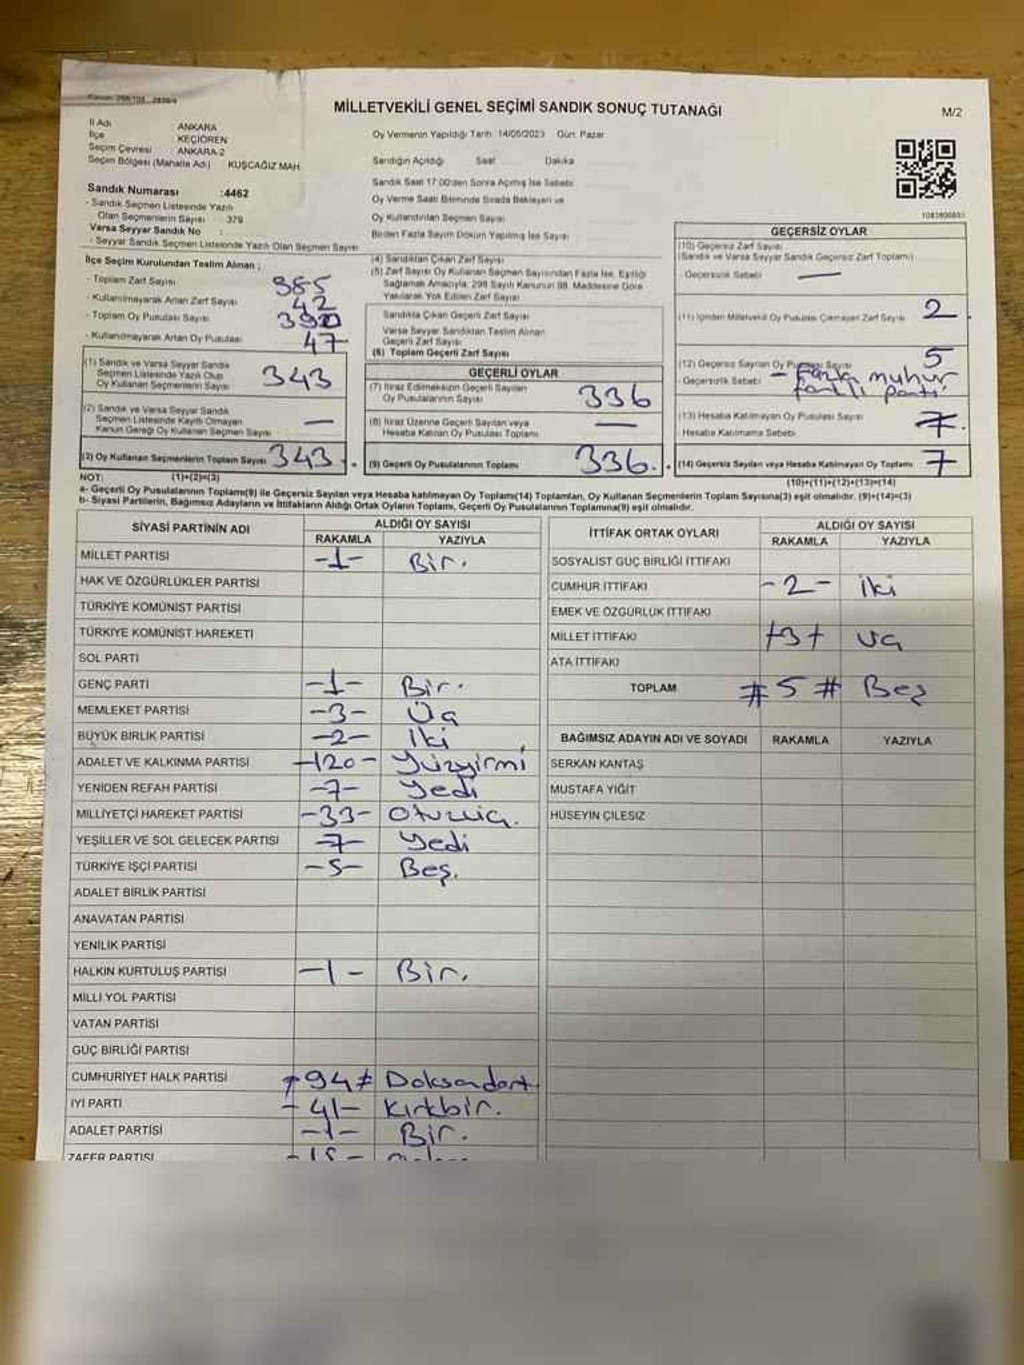 MİLLETVEKİLİ GENEL SEÇİMİ SANDIK SONUÇ TUTANAĞI
M/2
İl Adı : ANKARA
İlçe : KEÇİÖREN
Seçim Çevresi : ANKARA-2
Seçim Bölgesi (Mahalle Adı) KUŞCAĞIZ MAH.
Sandık Numarası :4462
- Sandık Seçmen Listesinde Yazılı
Olan Seçmenlerin Sayısı : 379
Varsa Seyyar Sandık No :
- Seyyar Sandık Seçmen Listesinde Yazılı Olan Seçmen Sayısı
Oy Vermenin Yapıldığı Tarih :14/05/2023 Gün: Pazar
Sandığın Açıldığı Saat Dakika
Sandık Saat 17.00'den Sonra Açılmış İse Sebebi
Oy Verme Saati Bitiminde Sırada Bekleyen ve
Oy Kullandırılan Seçmen Sayısı
Birden Fazla Sayım Döküm Yapılmış İse Sayısı
İlçe Seçim Kurulundan Teslim Alınan ;
- Toplam Zarf Sayısı 385
- Kullanılmayarak Artan Zarf Sayısı 42
- Toplam Oy Pusulası Sayısı 390
- Kullanılmayarak Artan Oy Pusulası 47
(1) Sandık ve Varsa Seyyar Sandık
Seçmen Listesinde Yazılı Olup
Oy Kullanan Seçmenlerin Sayısı 343
(2) Sandık ve Varsa Seyyar Sandık
Seçmen Listesinde Kayıtlı Olmayan
Kanun Gereği Oy Kullanan Seçmen Sayısı —
(3) Oy Kullanan Seçmenlerin Toplam Sayısı 343.
(1)+(2)=(3)
(4) Sandıktan Çıkan Zarf Sayısı
(5) Zarf Sayısı Oy Kullanan Seçmen Sayısından Fazla İse, Eşitliği
Sağlamak Amacıyla, 298 Sayılı Kanunun 98. Maddesine Göre
Yakılarak Yok Edilen Zarf Sayısı
Sandıkta Çıkan Geçerli Zarf Sayısı
Varsa Seyyar Sandıktan Teslim Alınan
Geçerli Zarf Sayısı
(6) Toplam Geçerli Zarf Sayısı
GEÇERLİ OYLAR
(7) İtiraz Edilmeksizin Geçerli Sayılan
Oy Pusulalarının Sayısı 336
(8) İtiraz Üzerine Geçerli Sayılan veya
Hesaba Katılan Oy Pusulası Toplamı —
(9) Geçerli Oy Pusulalarının Toplamı 336.
GEÇERSİZ OYLAR
(10) Geçersiz Zarf Sayısı
(Sandık ve Varsa Seyyar Sandık Geçersiz Zarf Toplamı)
- Geçersizlik Sebebi —
(11) İçinden Milletvekili Oy Pusulası Çıkmayan Zarf Sayısı 2
(12) Geçersiz Sayılan Oy Pusulası Sayısı 5
- Geçersizlik Sebebi - Fazla mühür
farklı parti
(13) Hesaba Katılmayan Oy Pusulası Sayısı 7.
- Hesaba Katılmama Sebebi
(14) Geçersiz Sayılan veya Hesaba Katılmayan Oy Toplamı 7
(10)+(11)+(12)+(13)=(14)
NOT:
a- Geçerli Oy Pusulalarının Toplamı(9) ile Geçersiz Sayılan veya Hesaba katılmayan Oy Toplamı(14) Toplamları, Oy Kullanan Seçmenlerin Toplam Sayısına(3) eşit olmalıdır. (9)+(14)=(3)
b- Siyasi Partilerin, Bağımsız Adayların ve İttifakların Aldığı Ortak Oyların Toplamı, Geçerli Oy Pusulalarının Toplamına(9) eşit olmalıdır.
SİYASİ PARTİNİN ADI ALDIĞI OY SAYISI
RAKAMLA YAZIYLA
MİLLET PARTİSİ -1- Bir.
HAK VE ÖZGÜRLÜKLER PARTİSİ
TÜRKİYE KOMÜNİST PARTİSİ
TÜRKİYE KOMÜNİST HAREKETİ
SOL PARTİ
GENÇ PARTİ -1- Bir.
MEMLEKET PARTİSİ -3- Üç
BÜYÜK BİRLİK PARTİSİ -2- İki
ADALET VE KALKINMA PARTİSİ -120- Yüzyirmi
YENİDEN REFAH PARTİSİ -7- Yedi
MİLLİYETÇİ HAREKET PARTİSİ -33- Otuzüç.
YEŞİLLER VE SOL GELECEK PARTİSİ -7- Yedi
TÜRKİYE İŞÇİ PARTİSİ -5- Beş.
ADALET BİRLİK PARTİSİ
ANAVATAN PARTİSİ
YENİLİK PARTİSİ
HALKIN KURTULUŞ PARTİSİ -1- Bir.
MİLLİ YOL PARTİSİ
VATAN PARTİSİ
GÜÇ BİRLİĞİ PARTİSİ
CUMHURİYET HALK PARTİSİ 94 Doksandört
İYİ PARTİ -41- Kırkbir.
ADALET PARTİSİ -1- Bir.
ZAFER PARTİSİ
İTTİFAK ORTAK OYLARI ALDIĞI OY SAYISI
RAKAMLA YAZIYLA
SOSYALİST GÜÇ BİRLİĞİ İTTİFAKI
CUMHUR İTTİFAKI -2- İki
EMEK VE ÖZGÜRLÜK İTTİFAKI
MİLLET İTTİFAKI +3+ Üç
ATA İTTİFAKI
TOPLAM #5# Beş
BAĞIMSIZ ADAYIN ADI VE SOYADI RAKAMLA YAZIYLA
SERKAN KANTAŞ
MUSTAFA YİĞİT
HÜSEYİN ÇİLESİZ